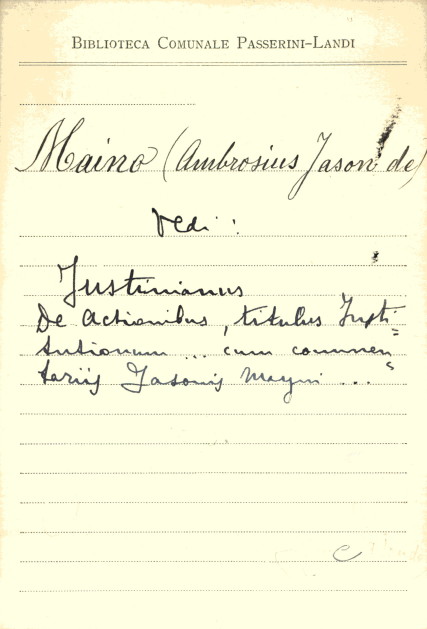 BIBLIOTECA COMUNALE PASSERINI-LANDI
Maino (Ambrosius Jason de)
Vedi:
Justinianus
De Actionibus, titulus Insti=
tutionum ... cum commen=
tariis Jasonis Mayni ...
C